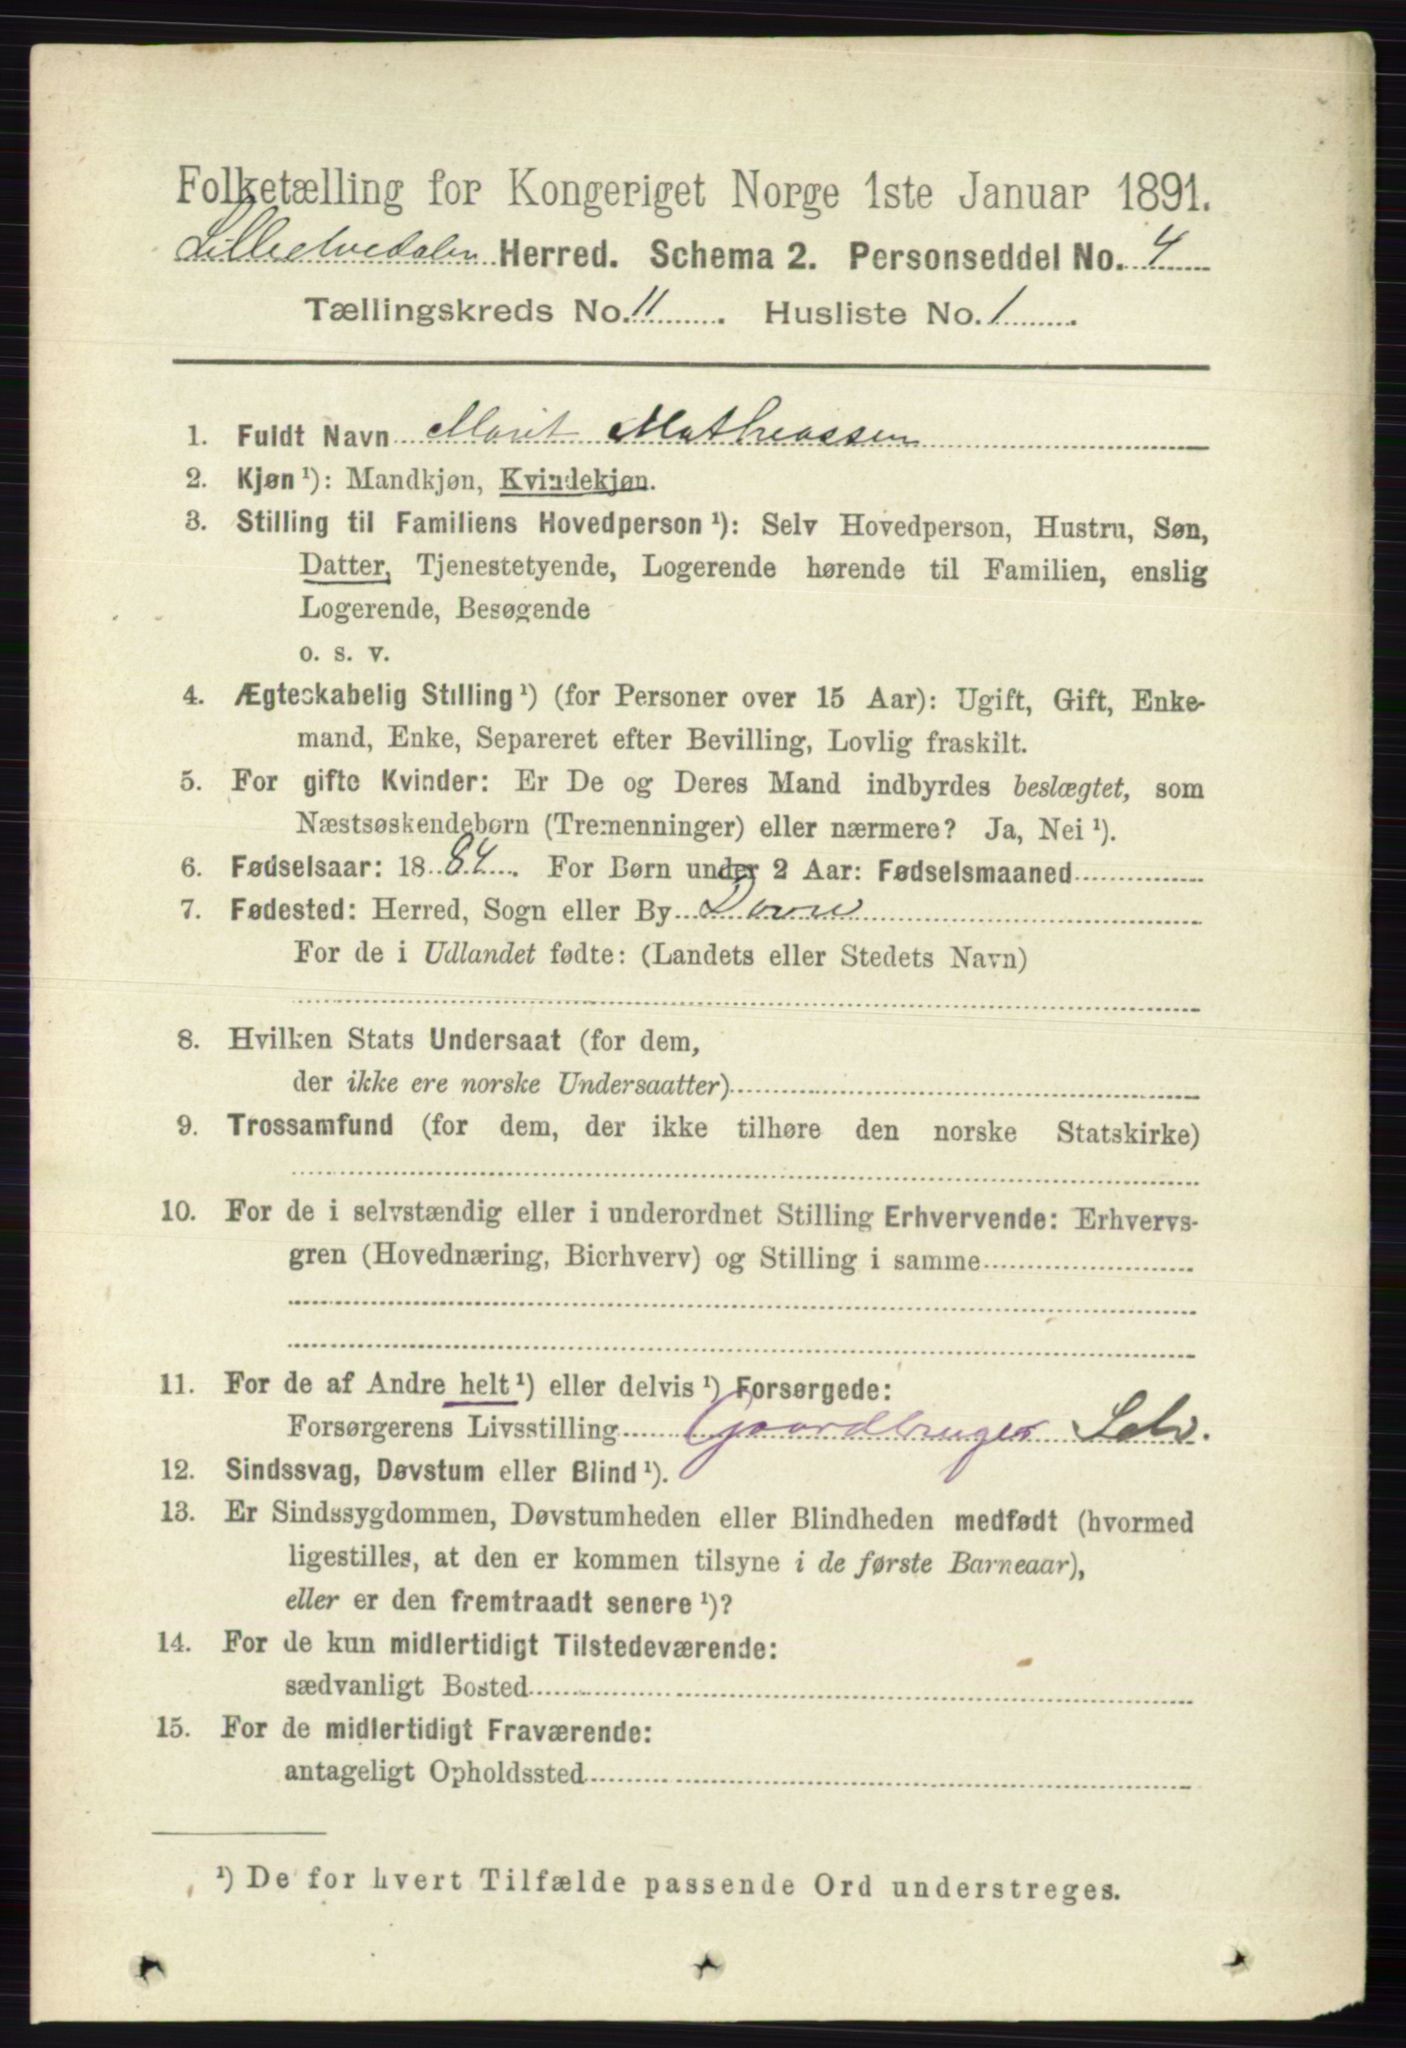 Folketælling for Kongeriget Norge 1ste Januar 1891.
Lilleelvedalen Herred. Schema 2. Personseddel No. 4
Tællingskreds No. 11. Husliste No. 1.
1. Fuldt Navn Marit Matheassen
2. Kjøn ¹): Mandkjøn, Kvindekjøn.
3. Stilling til Familiens Hovedperson ¹): Selv Hovedperson, Hustru, Søn,
Datter, Tjenestetyende, Logerende hørende til Familien, enslig
Logerende, Besøgende
o. s. v.
4. Ægteskabelig Stilling ¹) (for Personer over 15 Aar): Ugift, Gift, Enke-
mand, Enke, Separeret efter Bevilling, Lovlig fraskilt.
5. For gifte Kvinder: Er De og Deres Mand indbyrdes beslægtet, som
Næstsøskendebørn (Tremenninger) eller nærmere? Ja, Nei ¹).
6. Fødselsaar: 1884. For Børn under 2 Aar: Fødselsmaaned
7. Fødested: Herred, Sogn eller By Dovre
For de i Udlandet fødte: (Landets eller Stedets Navn)
8. Hvilken Stats Undersaat (for dem,
der ikke ere norske Undersaatter)
9. Trossamfund (for dem, der ikke tilhøre den norske Statskirke)
10. For de i selvstændig eller i underordnet Stilling Erhvervende: Erhvervs-
gren (Hovednæring, Bierhverv) og Stilling i samme
11. For de af Andre helt ¹) eller delvis ¹) Forsørgede:
Forsørgerens Livsstilling Gaardbruger Selv.
12. Sindssvag, Døvstum eller Blind ¹).
13. Er Sindssygdommen, Døvstumheden eller Blindheden medfødt (hvormed
ligestilles, at den er kommen tilsyne i de første Barneaar),
eller er den fremtraadt senere ¹)?
14. For de kun midlertidigt Tilstedeværende:
sædvanligt Bosted
15. For de midlertidigt Fraværende:
antageligt Opholdssted
¹) De for hvert Tilfælde passende Ord understreges.